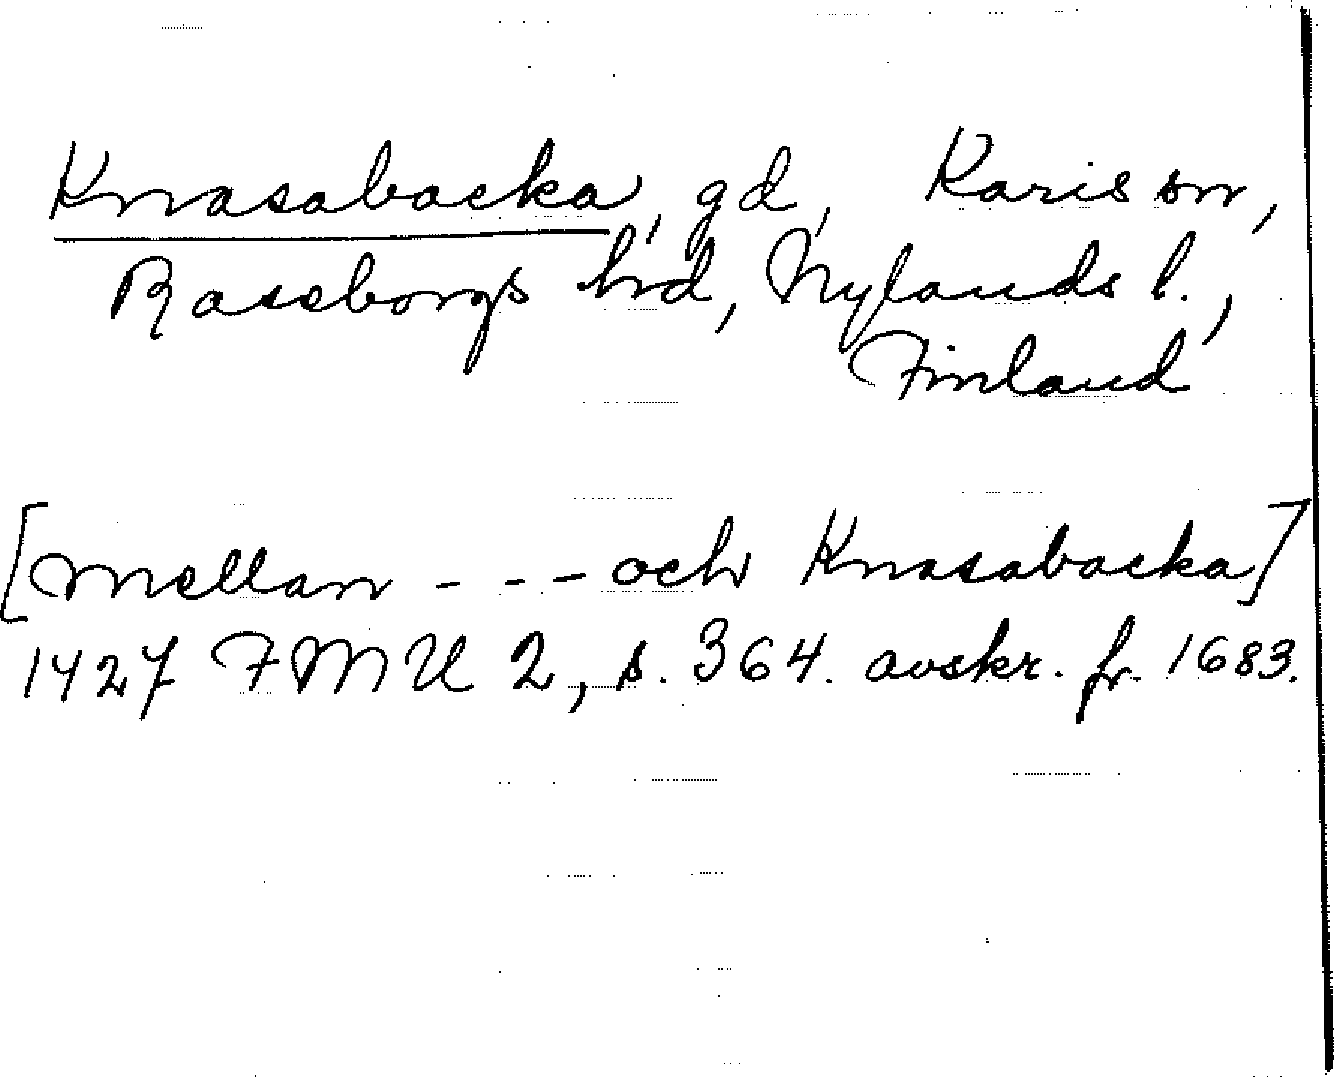 Knasabacka, gd, Karis sn,
Raseborgs hrd, Nylands l.,
Finland
[mellan - - - och Knasabacka]
1427 FMU 2, s. 364. avskr. fr. 1683.